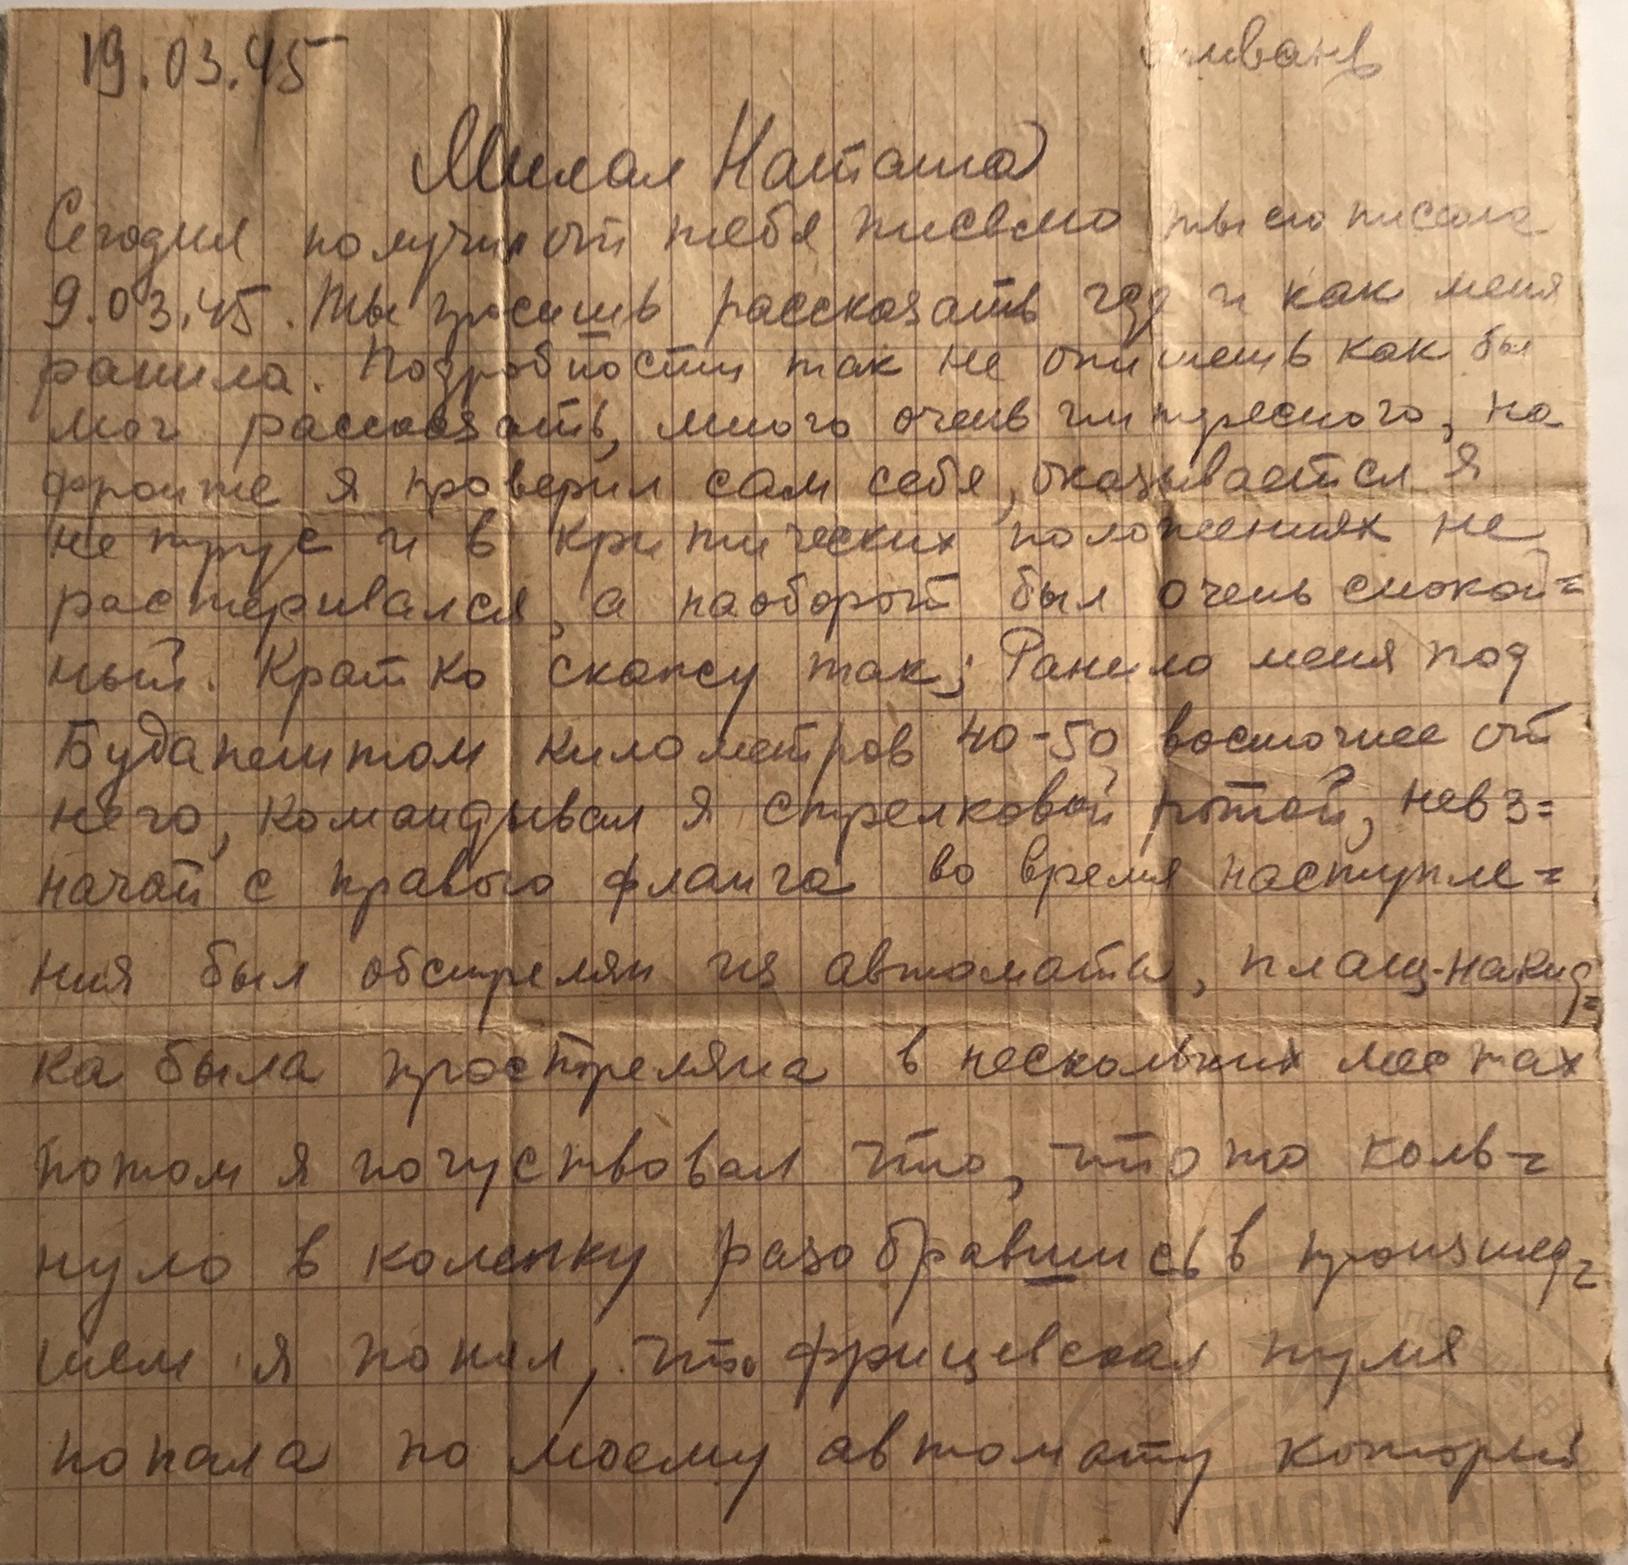 19.03.45
Милая Наташа
Сегодня получил от тебя письмо ты его писала
9.03.45. Ты просишь рассказать где и как меня
ранило. Подробности так не опишешь как бы
мог рассказать, много очень интересного, на
фронте я проверил сам себя, оказывается я
не трус и в критических положениях не
растеривался, а наоборот был очень спокой=
ный. Кратко скажу так; Ранило меня под
Будапештом километров 40-50 восточнее от
него, командывал я стрелковой ротой, невз=
начай с правого фланга во время наступле=
ния был обстрелян из автоматы, плащ-накид=
ка была простреляна в нескольких местах
потом я почуствовал что, что то коль=
нуло в коленку разобравшись в произшед=
шем я понял, что фрицевская пуля
попала по моему автомату который
ПИСЬМА